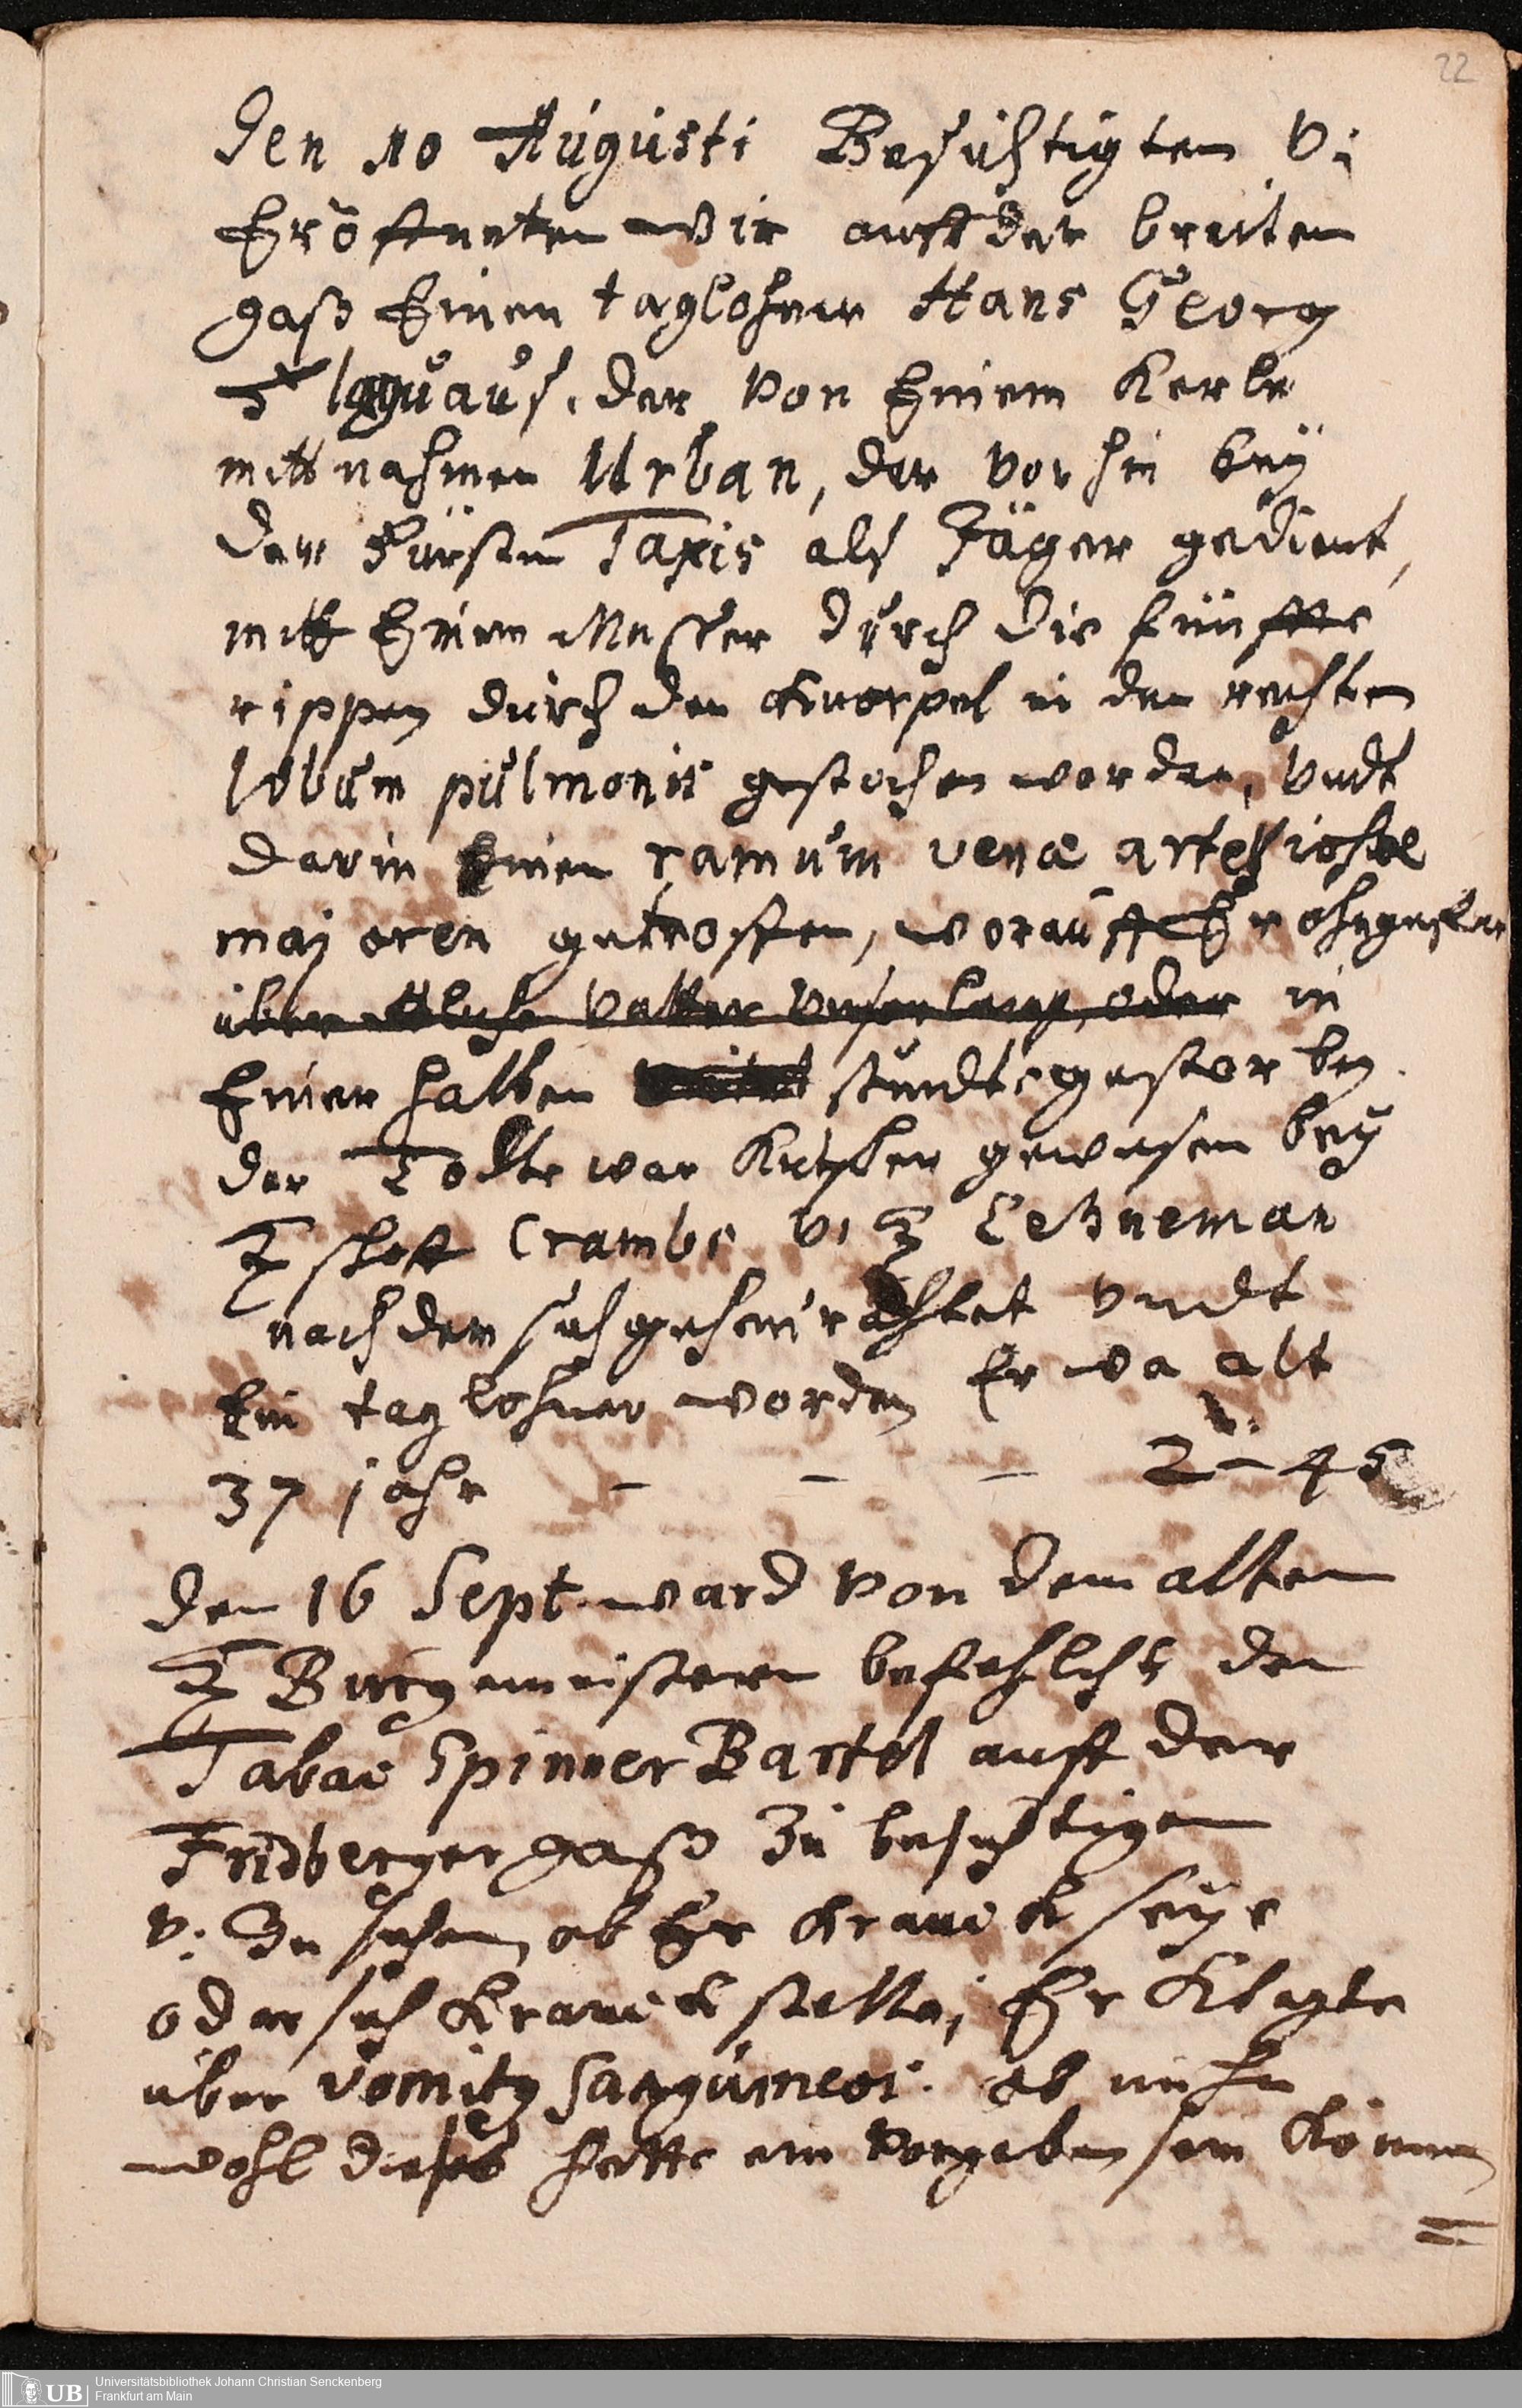 22
Den 10 Augusti Besichtigten v:
Eröffneten wir auff der breiten
gaß Einen taglöhner Hans Georg
der von Einem Kerle
mitt nahmen Urban, der vorhin bey
dem Fürsten Taxis alß Jäger gedient,
mitt Einem Messer durch die fünffte
rippen durch den Knorpel in den rechten
lobum pulmonis gestochen worden, undt
darin Einen ramum venæ arteriosæ
majoren getroffen, worauff Er ohngefehr
über etliche Vatter unser lang, oder in
Einer halben stundte gestorben.
der Todte war Kutscher gewesen bey
H schöff Crambs v: H Lehneman
nach dem sich geheirahtet undt
Ein taglöhner worden Er wa alt
37 jahr - - - 2-45
den 16 Sept. ward von dem alten
H Burgemeistern befohlen den
Tabac Spinner Bartel auff der
Fridberger gaß zu besichtigen
v: zu sehen, ob Er Kranck seye
oder sich Kranck stelle; Er Klagte
über vomitus sanguineos. ob nuhn
wohl dieses hette ein vorgeben sein Können